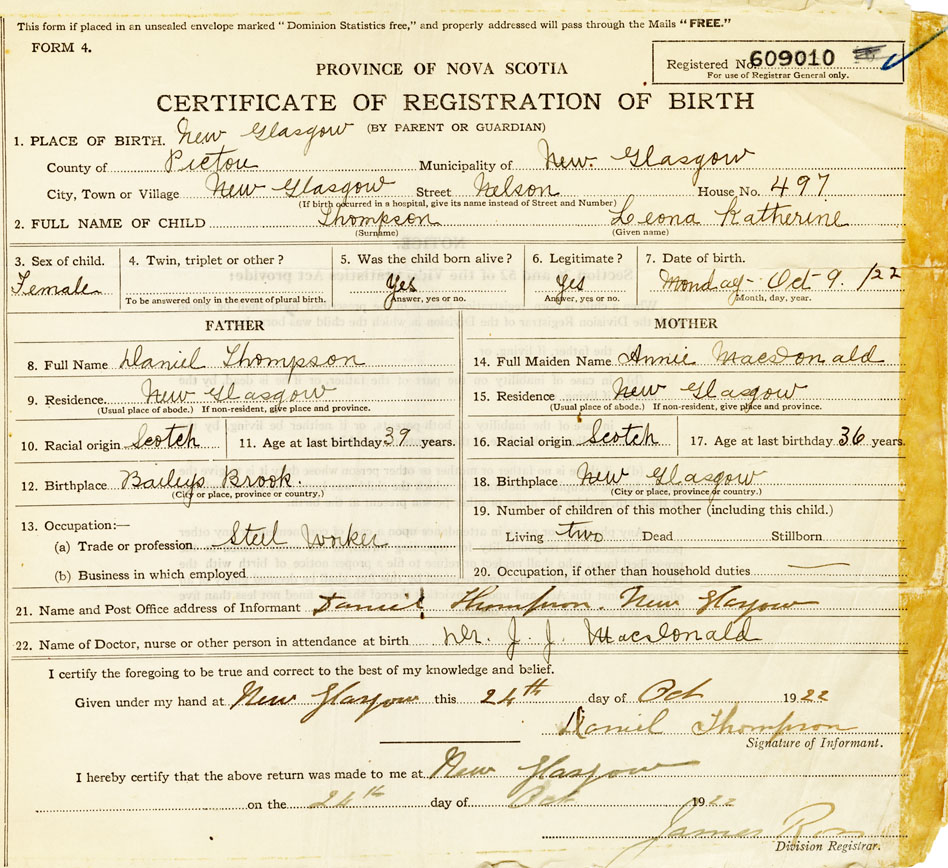 This form if placed in an unsealed envelope marked "Dominion Statistics free," and properly addressed will pass through the Mails "FREE."
FORM 4.
Registered No. 609010
For use of Registrar General only.
PROVINCE OF NOVA SCOTIA
CERTIFICATE OF REGISTRATION OF BIRTH
(BY PARENT OR GUARDIAN)
1. PLACE OF BIRTH. New Glasgow
County of Pictou Municipality of New. Glasgow
City, Town or Village New Glasgow Street Nelson House No. 497
(If birth occurred in a hospital, give its name instead of Street and Number)
2. FULL NAME OF CHILD Thompson Leona Katherine
(Surname) (Given name)
3. Sex of child. 4. Twin, triplet or other? 5. Was the child born alive? 6. Legitimate? 7. Date of birth.
Female Yes Yes Monday - Oct 9. /22
To be answered only in the event of plural birth. Answer, yes or no. Answer, yes or no. Month, day, year.
FATHER MOTHER
8. Full Name Daniel Thompson 14. Full Maiden Name Annie MacDonald
9. Residence. New Glasgow 15. Residence New Glasgow
(Usual place of abode.) If non-resident, give place and province. (Usual place of abode.) If non-resident, give place and province.
10. Racial origin Scotch 11. Age at last birthday 39 years. 16. Racial origin Scotch 17. Age at last birthday 36 years.
12. Birthplace Baileys Brook. 18. Birthplace New Glasgow
(City or place, province or country.) (City or place, province or country.)
13. Occupation:— 19. Number of children of this mother (including this child.)
(a) Trade or profession Steel Worker Living two Dead Stillborn
(b) Business in which employed 20. Occupation, if other than household duties —
21. Name and Post Office address of Informant Daniel Thompson. New Glasgow
22. Name of Doctor, nurse or other person in attendance at birth Dr. J. J. MacDonald
I certify the foregoing to be true and correct to the best of my knowledge and belief.
Given under my hand at New Glasgow this 24th day of Oct 1922
Daniel Thompson
Signature of Informant.
I hereby certify that the above return was made to me at New Glasgow
on the 24th day of Oct 1922
James Ross
Division Registrar.